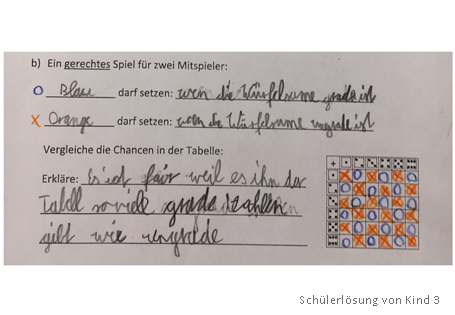 b) Ein gerechtes Spiel für zwei Mitspieler:
O Blau darf setzen: wen die Würfelsume grade ist
X Orange darf setzen: wen die Würfelsume ungrade ist
Vergleiche die Chancen in der Tabelle:
Erkläre: Es ist fair weil es ihn der
Tabell soviele grade Zahlen
gibt wie ungrade
Schülerlösung von Kind 3